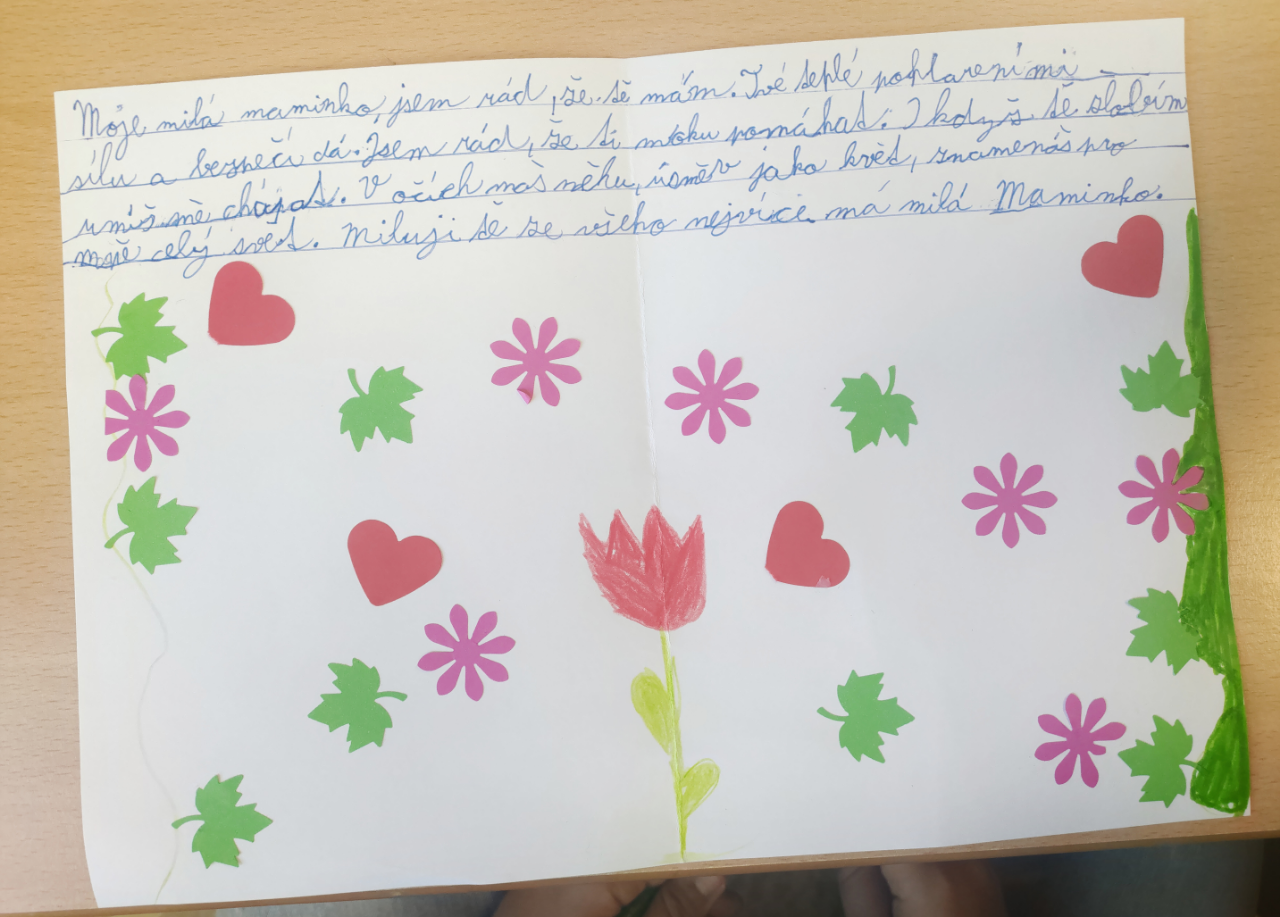 Moje milá maminko, jsem rád, že tě mám. Tvé teplé pohlazení mi
sílu a bezpečí dá. Jsem rád, že ti mohu pomáhat. I když tě zlobím
umíš mě chápat. V očích máš něhu, úsměv jako květ, znamenáš pro
mně celý svět. Miluji tě ze všeho nejvíce má milá Maminko.